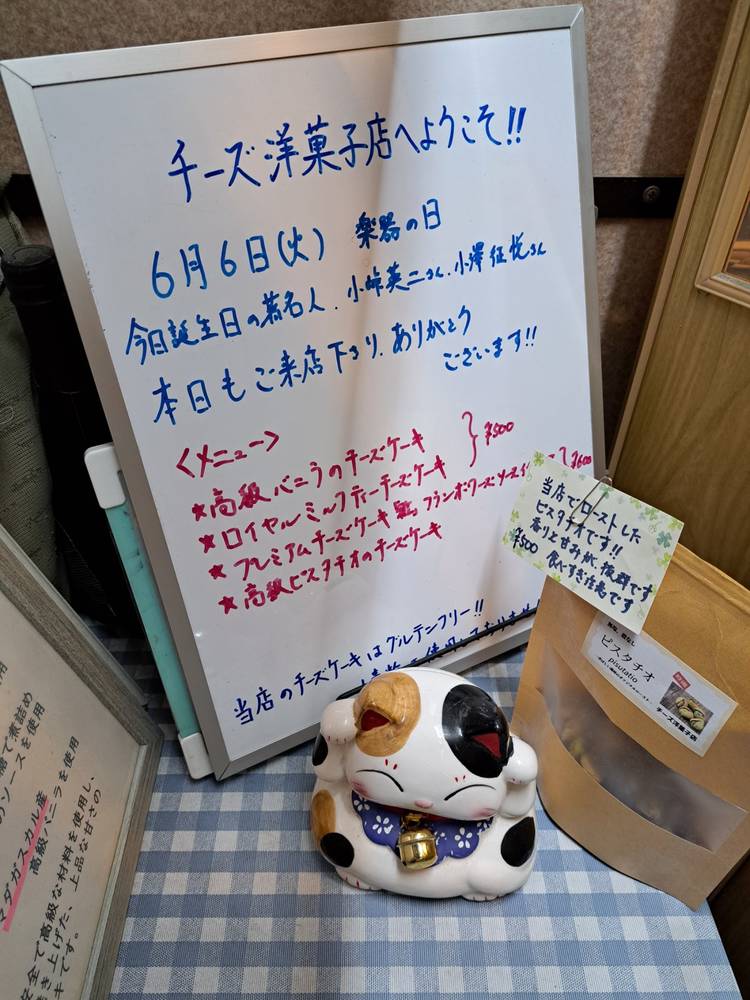 チーズ洋菓子店へようこそ!!
6月6日(火) 楽器の日
今日誕生日の著名人、小峠英二さん、小澤征悦さん
本日もご来店下さり、ありがとう
ございます!!
<メニュー>
★高級バニラのチーズケーキ
★ロイヤルミルクティーチーズケーキ
}¥500
★プレミアムチーズケーキ フランボワーズソース付
★高級ピスタチオのチーズケーキ
}¥600
当店のチーズケーキはグルテンフリー!!
使用しておりません
当店でローストした
ピスタチオです!!
香りと甘みが、抜群です
¥500 食べすぎ注意です
無塩、砂なし
ピスタチオ
pisutatio
チーズ洋菓子店
使用
糖で煮詰め
のソースを使用
マダガスカル産
高級バニラを使用
安全で高級な材料を使用し、
焼き上げた、上品な甘さの
キです。